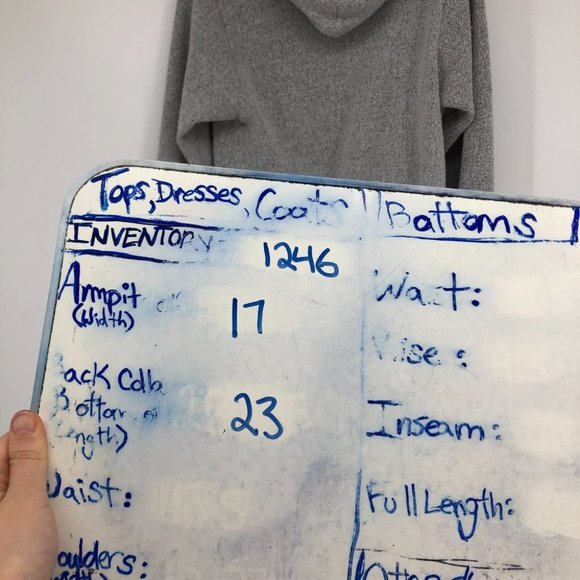 Tops, Dresses, Coats
Bottoms
INVENTORY
1246
Armpit
(Width)
17
ack Colla
Bottom of
ength)
23
Waist:
oulders:
Wa t:
ise:
Inseam:
Full Length: